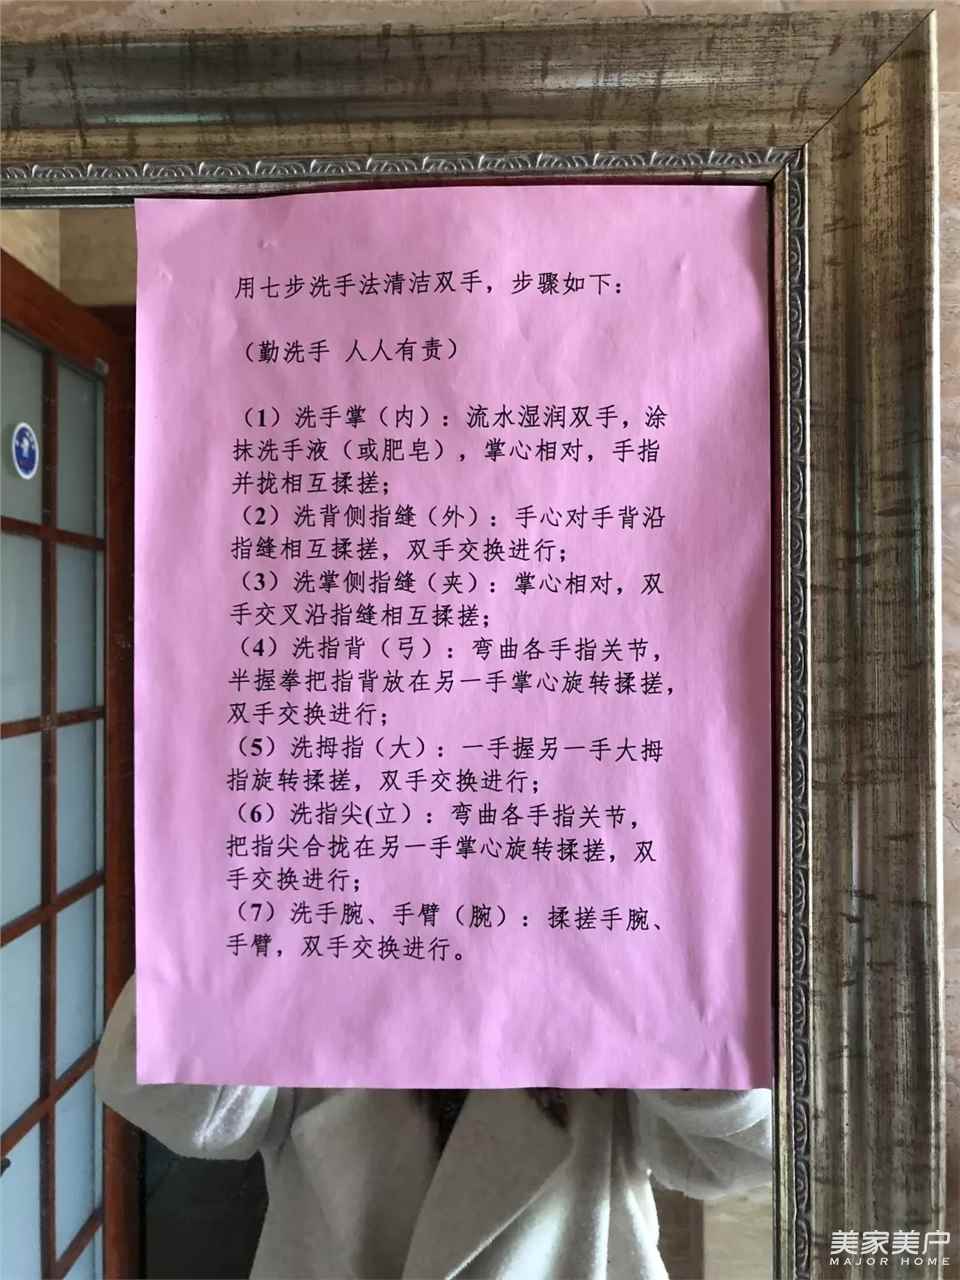 用七步洗手法清洁双手，步骤如下：
（勤洗手 人人有责）
（1）洗手掌（内）：流水湿润双手，涂
抹洗手液（或肥皂），掌心相对，手指
并拢相互揉搓；
（2）洗背侧指缝（外）：手心对手背沿
指缝相互揉搓，双手交换进行；
（3）洗掌侧指缝（夹）：掌心相对，双
手交叉沿指缝相互揉搓；
（4）洗指背（弓）：弯曲各手指关节，
半握拳把指背放在另一手掌心旋转揉搓，
双手交换进行；
（5）洗拇指（大）：一手握另一手大拇
指旋转揉搓，双手交换进行；
（6）洗指尖(立）：弯曲各手指关节，
把指尖合拢在另一手掌心旋转揉搓，双
手交换进行；
（7）洗手腕、手臂（腕）：揉搓手腕、
手臂，双手交换进行。
美家美户
MAJOR HOME